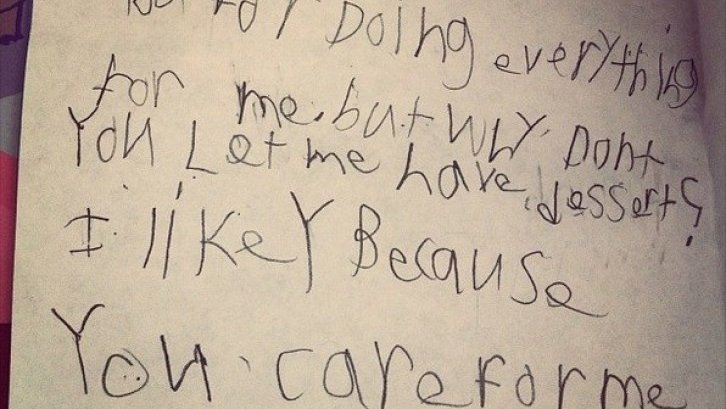 for Doing everything
for me. but why Dont
You Let me have dessert?
I likeY Because
You care for me